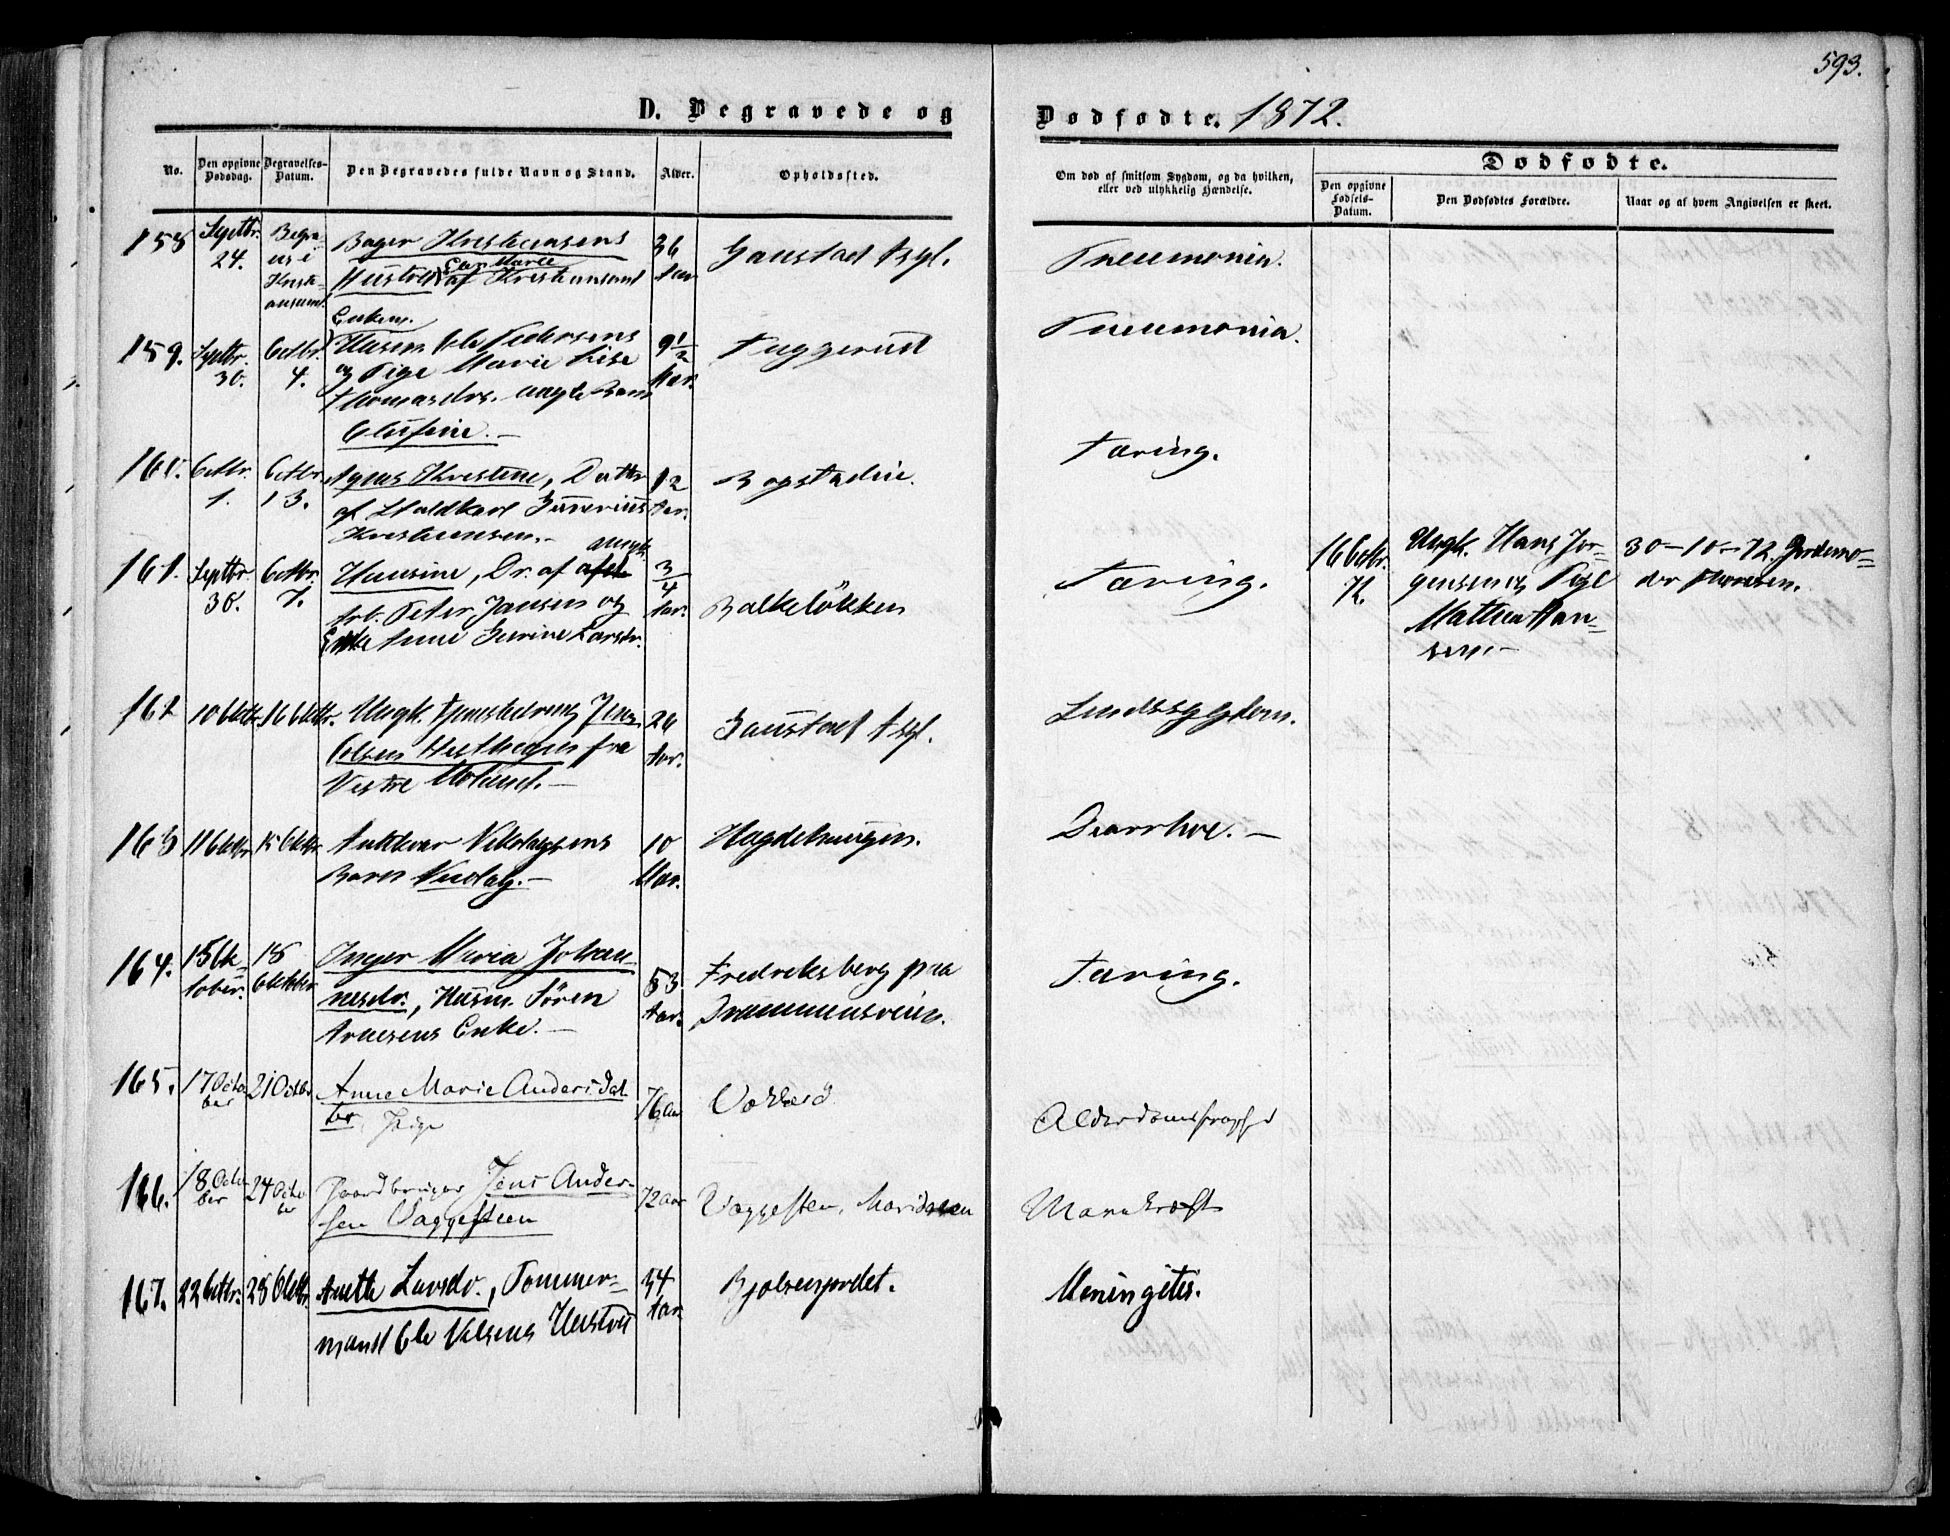 593.
D. Begravede og
Dødfødte. 1872.
No.
Den opgivne Dødsdag.
Begravelses-Datum.
Den Begravedes fulde Navn og Stand.
Alder.
Opholdssted.
Om død af smitsom Sygdom, og da hvilken, eller ved ulykkelig Hændelse.
Dødfødte.
Den opgivne Fødsels-Datum.
Den Dødfødtes Forældre.
Naar og af hvem Angivelsen er skeet.
158 Septbr. 24. Begra-
ves i
Kristi-
ansund
Bager Kristensens
Hustru af Kristiansund
36 Aar
Gaustad Asyl.
Pneumonia.
159. Septbr. 30. Octbr. 4.
Enkem.
Husm. Ole Pedersens
og Pige Marie Lise
Thomasdrs. uægte Barn
Olufine.—
9 1/2 Mar.
Tuggerud
Pneumonia.
160. Octbr. 1. Octbr. 13.
Agnes Kristine, Datter
af Staldkarl
Kristensen.—
12 Aar.
Bogstadvei.
Tæring.
161. Septbr. 30. Octbr. 7.
Hansine, Dr. af afd.
arb. Peter Jansen og
Enke Anne Gurine Larsdr.
3/4 Aar.
Balkeløkken
Tæring.
16 Octbr. 72.
Ungk. Hans Jør-
gensen og Pige
Mathea Han-
sen.—
30-10-72 Jordemo-
der Thoresen.
162 10 Oktbr. 16 Oktbr.
Ungk. Tjenestedreng Jens
Olsen fra
Vestre Moland.—
26 Aar.
Gaustad Asyl.
163 11 Oktbr 15 Oktbr.
Nikolaysens
Barn Nicolay.—
10 Mar.
Hægdehaugen.
Diarrhoe.—
164. 15 Ok-
tober. 18 Oktober
Inger Maria Johan-
nesdr., Husm. Søren
Arnesens Enke.—
53 Aar.
Fredriksberg paa
Drammensveien.
Tæring.
165. 17 Octo
ber 21 Octbr
Anne Marie Andersdat-
ter Pige
76 Aar
Alderdomssvaghed
166. 18 Octo
ber 24 Octo
ber
Gaardbruger Jens Ander-
sen Vaggesteen
72 Aar
Vaggesten, Maridalen
Mavekræft
167. 22 Octbr. 28 Oktbr.
Anethe Larsdr., Tømmer-
mand Ole Nilsens Hustru
54 Aar
Bjølsenjordet.
Meningitis.